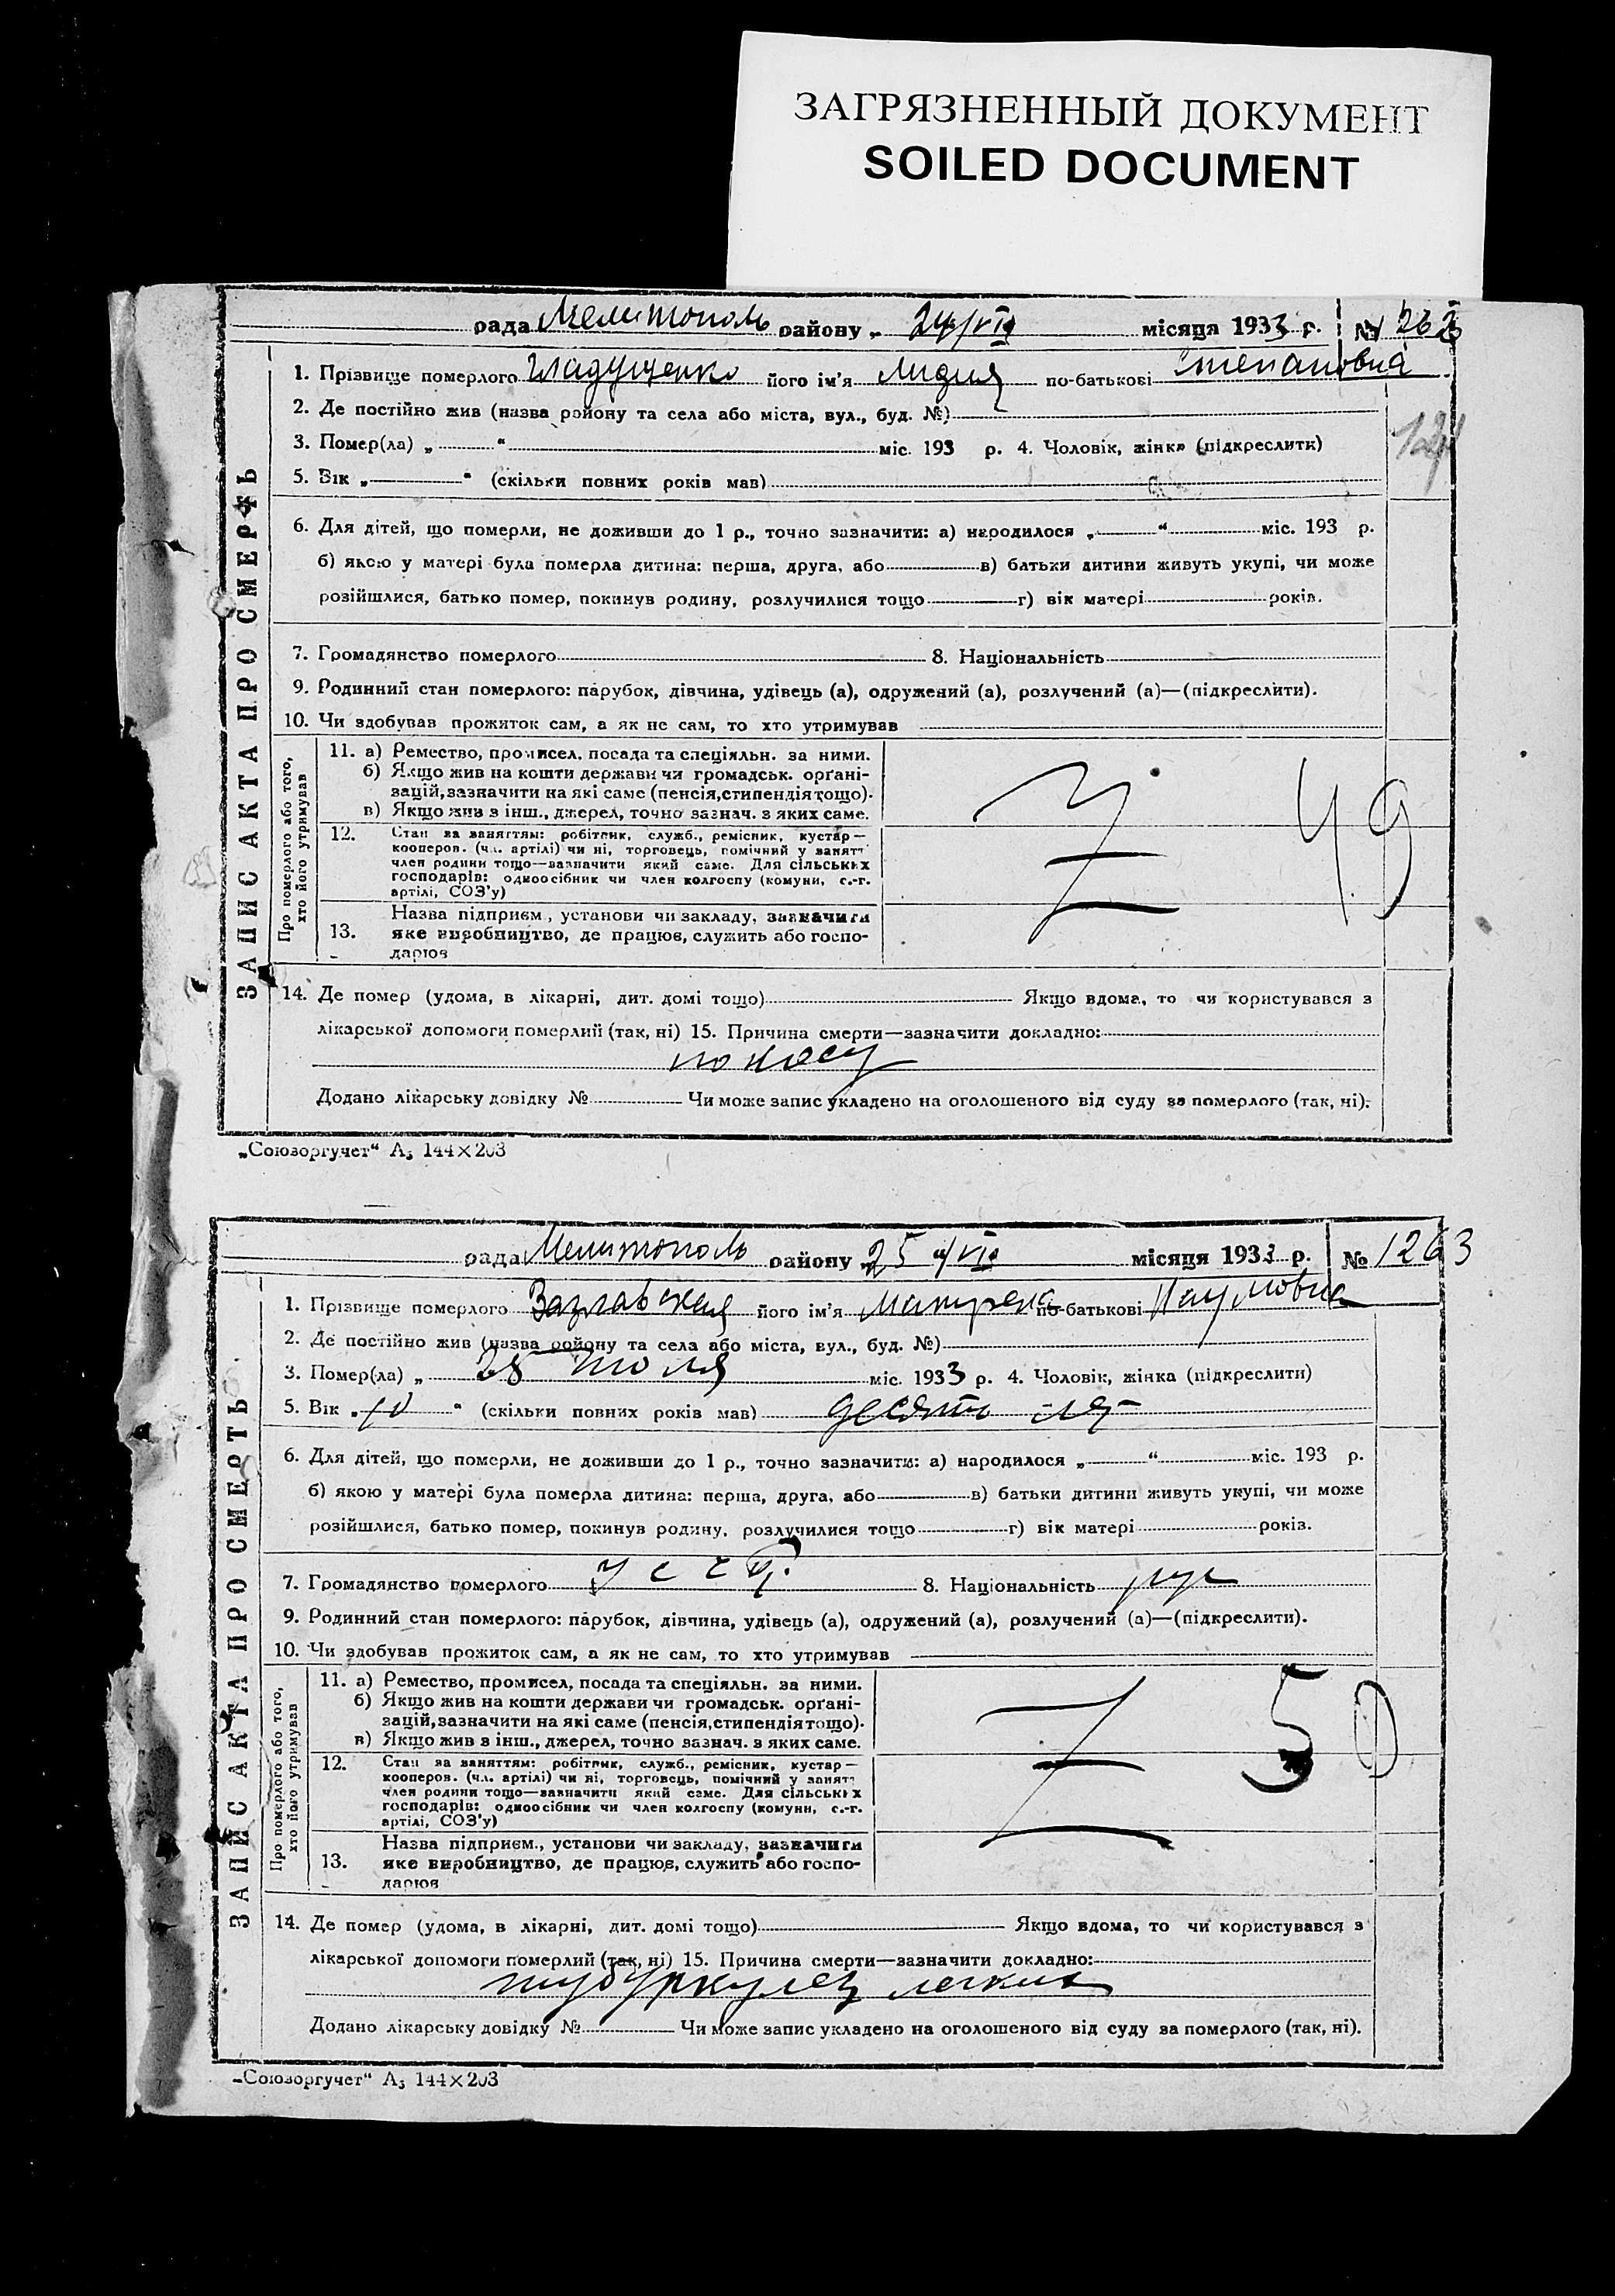 ЗАГРЯЗНЕННЫЙ ДОКУМЕНТ
SOILED DOCUMENT
рада Мелитополь району „ 24/VII місяця 1933 г. № 1262
1. Прізвище померлого його ім'я Лидия по-батькові Степановна
2. Де постійно жив (назва району та села або міста, вул., буд. №)
124
3. Помер(ла) „ “ міс. 193 р. 4. Чоловік, жінка (підкреслити)
5. Вік „ “ (скільки повних років мав)
6. Для дітей, що померли, не доживши до 1 р., точно зазначити: а) народилося „ “ міс. 193 р.
б) якою у матері була померла дитина: перша, друга, або в) батьки дитини живуть укупі, чи може
розійшлися, батько помер, покинув родину, розлучилися тощо г) вік матері років.
7. Громадянство померлого 8. Національність
9. Родинний стан померлого: парубок, дівчина, удівець (а), одружений (а), розлучений (а)—(підкреслити).
10. Чи здобував прожиток сам, а як не сам, то хто утримував
Про померлого або того, хто його утримував
11. а) Ремество, промисел, посада та спеціяльн. за ними.
б) Якщо жив на кошти держави чи громадськ. орґані-
зацій, зазначити на які саме (пенсія, стипендія тощо).
в) Якщо жив з інш., джерел, точно зазнач. з яких саме.
49
12. Стан за заняттям: робітник, служб., ремісник, кустар—
кооперов. (чл. артілі) чи ні, торговець, помічний у занятт
член родини тощо—зазначити який саме. Для сільських
господарів: одноосібник чи член колгоспу (комуни, с.-г.
артілі, СОЗ'у)
13. Назва підприєм., установи чи закладу, зазначити
яке виробництво, де працює, служить або госпо-
дарює
14. Де помер (удома, в лікарні, дит. домі тощо) Якщо вдома, то чи користувався з
лікарської допомоги померлий (так, ні) 15. Причина смерти—зазначити докладно:
Додано лікарську довідку № Чи може запис укладено на оголошеного від суду за померлого (так, ні).
ЗАПИС АКТА ПРО СМЕРТЬ
„Союзоргучет“ А₅ 144×203
рада Мелитополь району „ 25 “/VII місяця 1933 р. № 1263
1. Прізвище померлого Заславская його ім'я по-батькові Наумовна
2. Де постійно жив (назва району та села або міста, вул., буд. №)
3. Помер(ла) „ июля міс. 1933 р. 4. Чоловік, жінка (підкреслити)
5. Вік „ 10 “ (скільки повних років мав) десять лет
6. Для дітей, що померли, не доживши до 1 р., точно зазначити: а) народилося „ “ міс. 193 р.
б) якою у матері була померла дитина: перша, друга, або в) батьки дитини живуть укупі, чи може
розійшлися, батько помер, покинув родину, розлучилися тощо г) вік матері років.
7. Громадянство померлого УССР. 8. Національність рус
9. Родинний стан померлого: парубок, дівчина, удівець (а), одружений (а), розлучений (а)—(підкреслити).
10. Чи здобував прожиток сам, а як не сам, то хто утримував
Про померлого або того, хто його утримував
11. а) Ремество, промисел, посада та спеціяльн. за ними.
б) Якщо жив на кошти держави чи громадськ. орґані-
зацій, зазначити на які саме (пенсія, стипендія тощо).
в) Якщо жив з інш., джерел, точно зазнач. з яких саме.
50
12. Стан за заняттям: робітник, служб., ремісник, кустар—
кооперов. (чл. артілі) чи ні, торговець, помічний у занятт
член родини тощо—зазначити який саме. Для сільських
господарів: одноосібник чи член колгоспу (комуни, с.-г.
артілі, СОЗ'у)
13. Назва підприєм., установи чи закладу, зазначити
яке виробництво, де працює, служить або госпо-
дарює
14. Де помер (удома, в лікарні, дит. домі тощо) Якщо вдома, то чи користувався з
лікарської допомоги померлий (так, ні) 15. Причина смерти—зазначити докладно:
тубуркулез легких
Додано лікарську довідку № Чи може запис укладено на оголошеного від суду за померлого (так, ні).
ЗАПИС АКТА ПРО СМЕРТЬ
„Союзоргучет“ А₅ 144×203